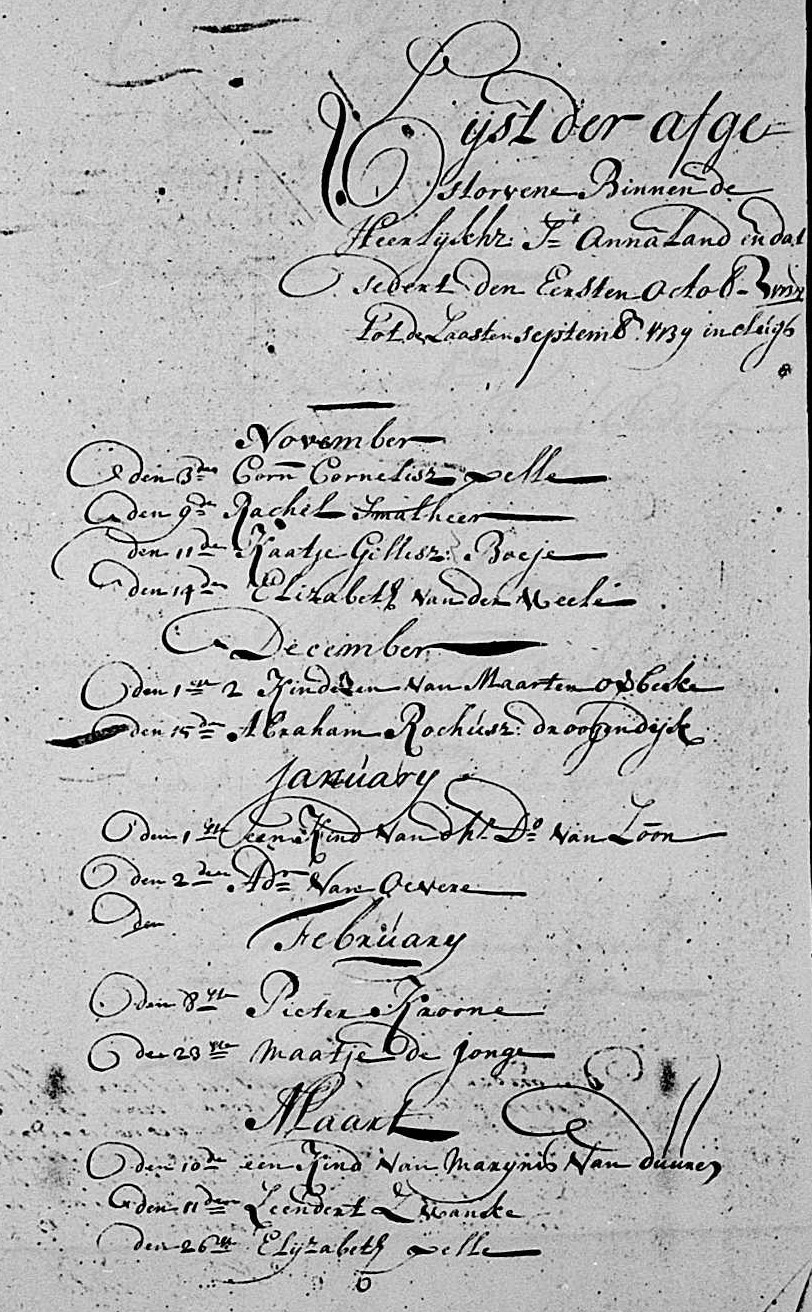 Lyst der afge-
storvene Binnen de
Heerlyckht: St Annaland en dat
sedert den Eersten Octob
tot de Laasten septemb 1739 incluys
November
den 3den Corn Cornelisz pelle
den 9de Rachel Smalheer
den 11de Kaatje Gillisz: Boeje
den 14den Elizabeth van der Weele
December
den 1en 2 Kinderen van Maarten opbeeke
den 15de Abraham Rochusz: droogendijk
January
den 1ste een Kind van dhr. Do van Loon
den 2den Adr van Oevere
den
February
den 8ste Pieter Kroone
den 23ste Maatje de Jonge
Maart
den 10de een Kind van Marynis van duuren
den 11den Leendert Zwancke
den 26ste Elyzabeth pelle